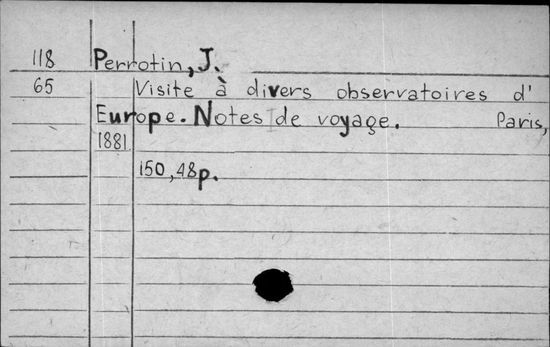 118 Perrotin, J.
65 Visite à divers observatoires d'
Europe. Notes de voyage. Paris,
1881
150, 48p.